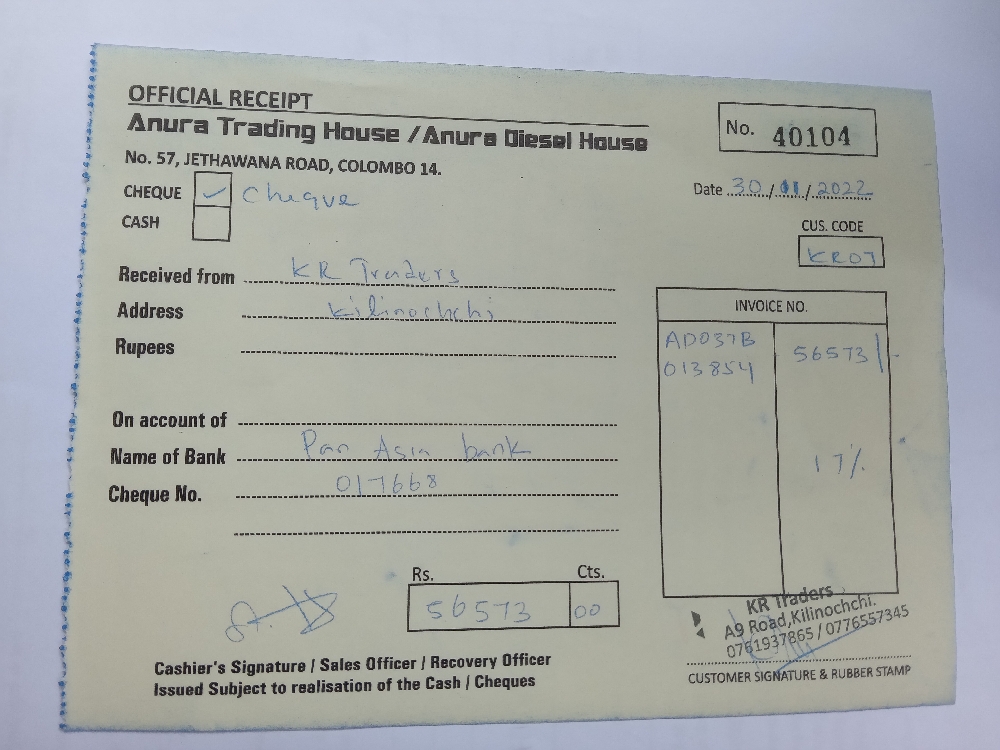 OFFICIAL RECEIPT
Anura Trading House / Anura Diesel House
No. 57, JETHAWANA ROAD, COLOMBO 14.
No. 40104
CHEQUE ✓ Cheque
CASH
Date 30/01/2022
CUS. CODE
KR07
Received from KR Traders
Address Kilinochchi
Rupees
INVOICE NO.
AD037B
013854
56573/-
17%
On account of
Name of Bank Pan Asia bank
Cheque No. 017668
Rs. Cts.
56573 00
KR Traders
A9 Road,Kilinochchi.
0761937865 / 0776557345
Cashier's Signature / Sales Officer / Recovery Officer
Issued Subject to realisation of the Cash / Cheques
CUSTOMER SIGNATURE & RUBBER STAMP